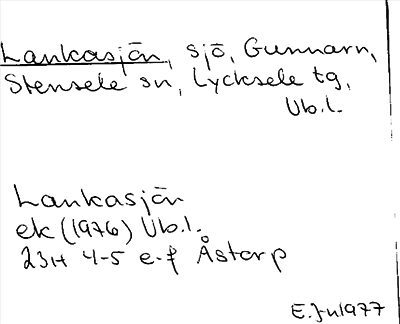 Lankasjön, sjö, Gunnarn,
Stensele sn, Lycksele tg,
Vb.l.
Lankasjön
ek (1976) Vb.l.
23H 4-5 e-f Åstorp
E.Ju 1977